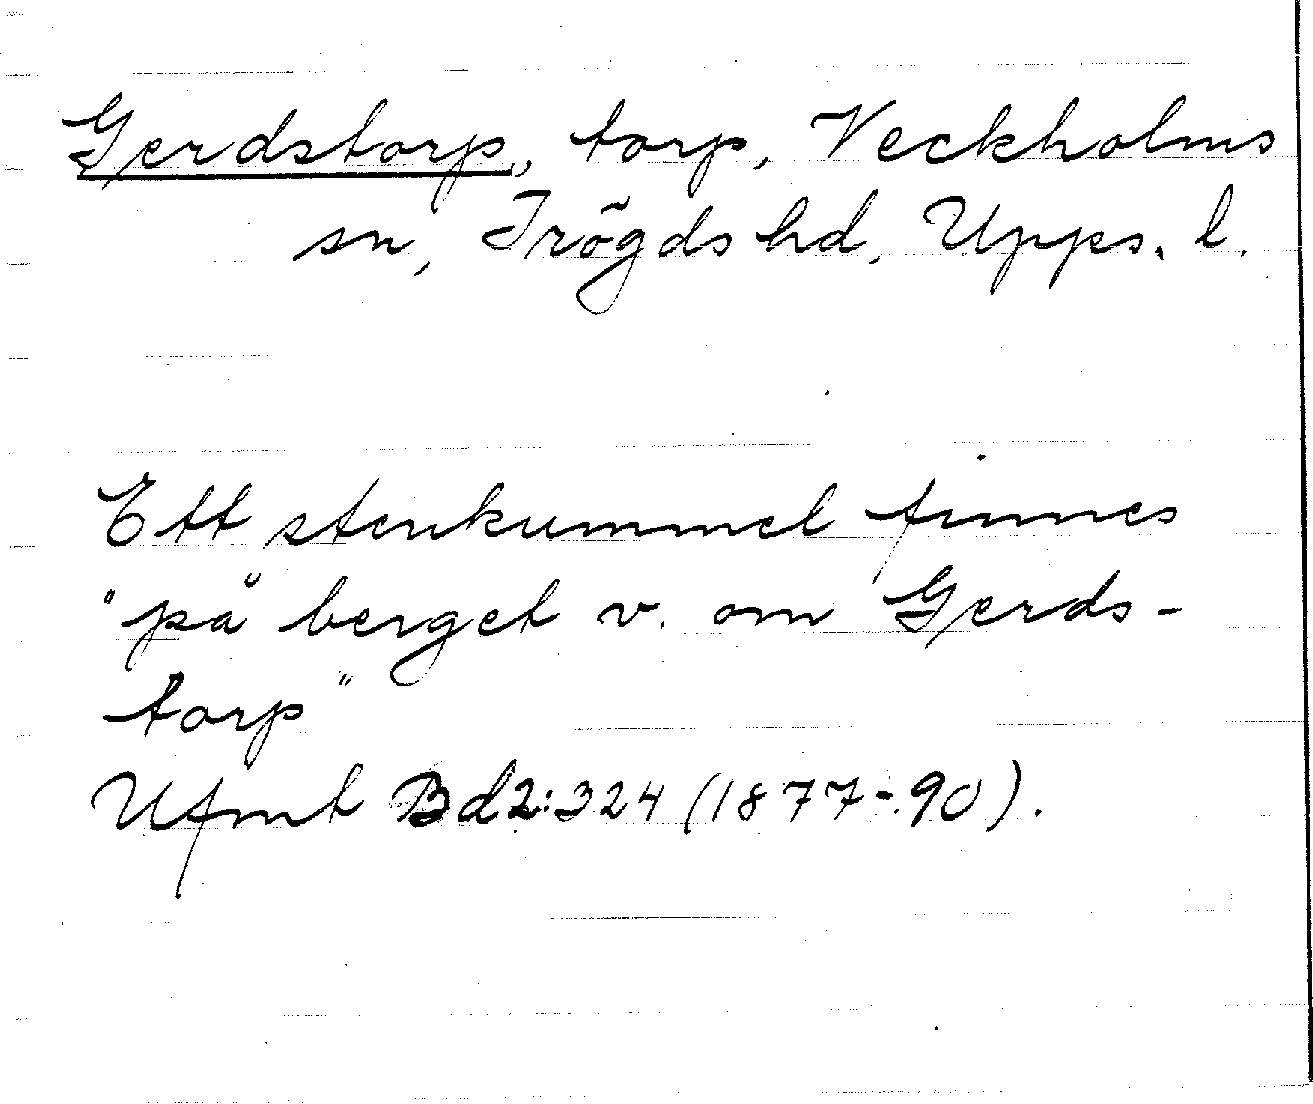 Gerdstorp, torp, Veckholms
sn, Trögds hd, Upps. l.
Ett stenkummel finnes
"på berget v. om Gerds-
torp"
Ufmt Bd2:324 (1877-90).